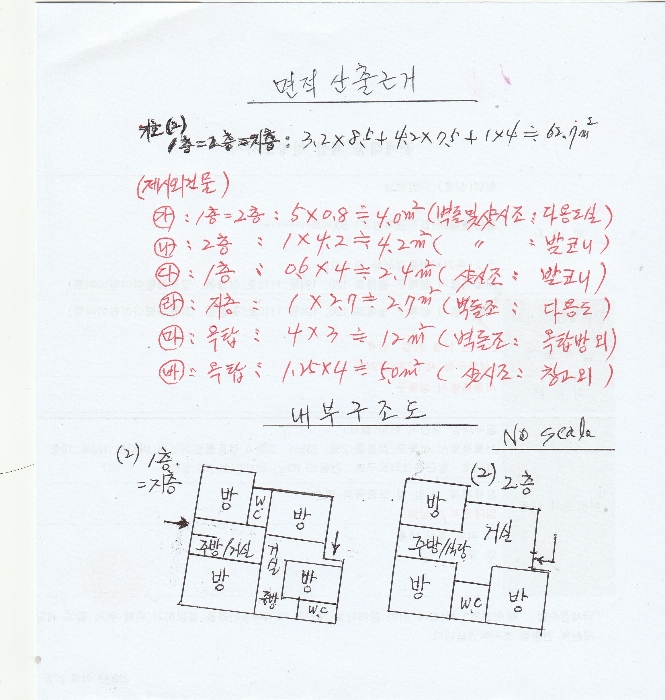 면적 산출근거
기호(2)
1층=2층=지층 : 3.2×8.5+4.2×7.5+1×4≒62.7㎡
(제시외건물)
㉮ : 1층=2층 : 5×0.8≒4.0㎡(벽돌및샷시조 : 다용도실)
㉯ : 2층 : 1×4.2≒4.2㎡( 〃 : 발코니)
㉰ : 1층 : 06×4≒2.4㎡( 샷시조 : 발코니)
㉱ : 지층 : 1×2.7≒2.7㎡(벽돌조 : 다용도)
㉲ : 옥탑 : 4×3≒12㎡(벽돌조 : 옥탑방외)
㉳ : 옥탑 : 1.25×4≒5.0㎡( 샷시조 : 창고외)
내부구조도
No scale
(2) 1층.
=지층
방
W.C
방
주방/거실
거실
방
주방
방
W.C
(2) 2층
방
거실
주방/식당
방
W.C
방